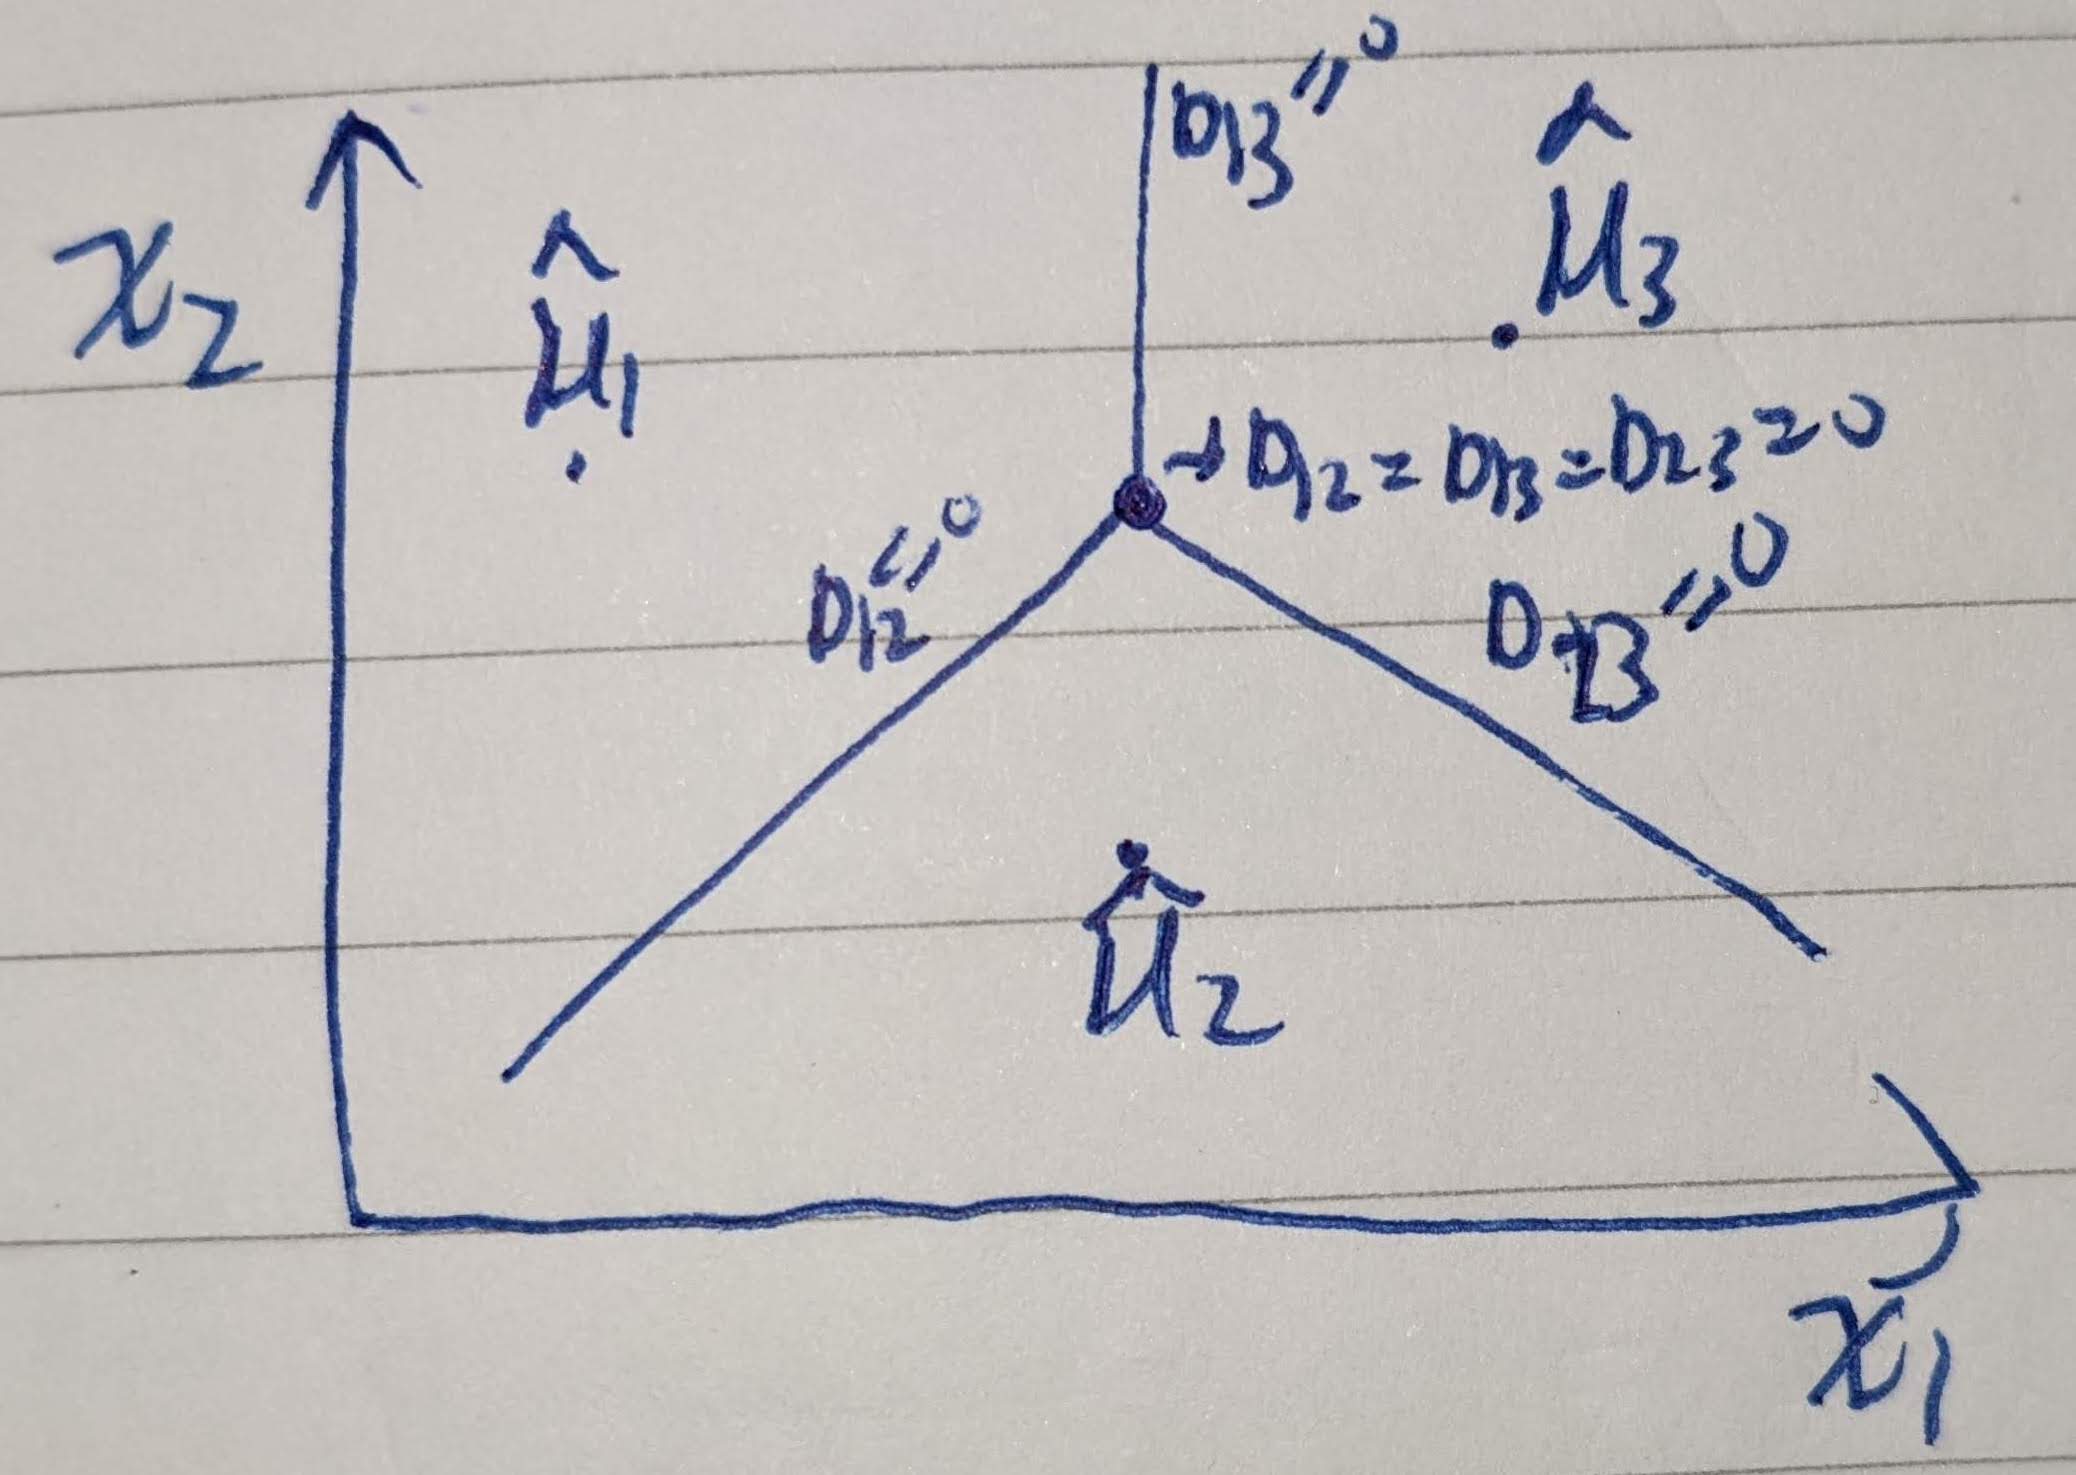 D13 = 0
x2
μ̂1
μ̂3
→ D12 = D13 = D23 = 0
D12 = 0
D23 = 0
μ̂2
x1